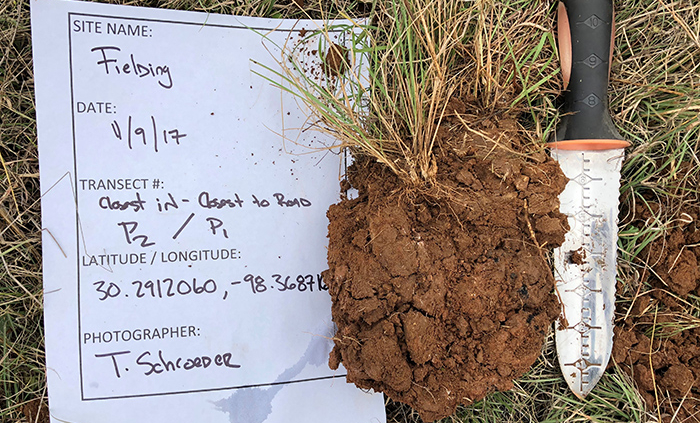 SITE NAME:
Fielding
DATE:
11/9/17
TRANSECT #:
Closest in - Closest to Road
P2 / P1
LATITUDE / LONGITUDE:
30.2912060, -98.3687
PHOTOGRAPHER:
T. Schroeder